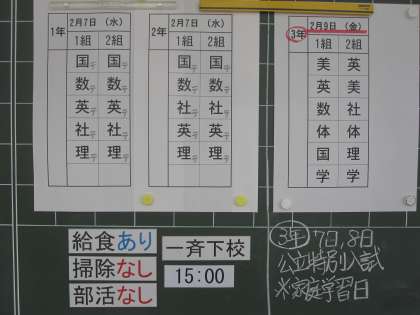 1年 2月7日 (水)
1組 2組
国テ 国テ
数テ 数テ
英テ 英テ
社テ 社テ
理テ 理テ
2年 2月7日 (水)
1組 2組
国テ 国テ
数テ 数テ
社テ 社テ
英テ 英テ
理テ 理テ
3年 2月9日 (金)
1組 2組
美 英
英 美
数 社
体 体
国 理
学 学
給食あり
掃除なし
部活なし
一斉下校
15:00
3年 7日,8日
公立特別入試
※家庭学習日